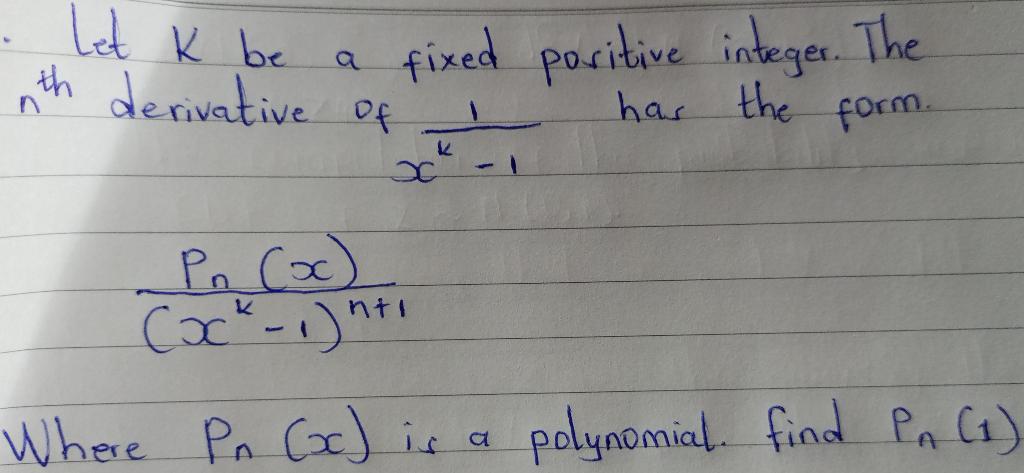 . Let K be a fixed positive integer. The
nth derivative of 1 / (x^k - 1) has the form.
Pn (x) / (x^k - 1)^(n+1)
Where Pn (x) is a polynomial. find Pn (1)